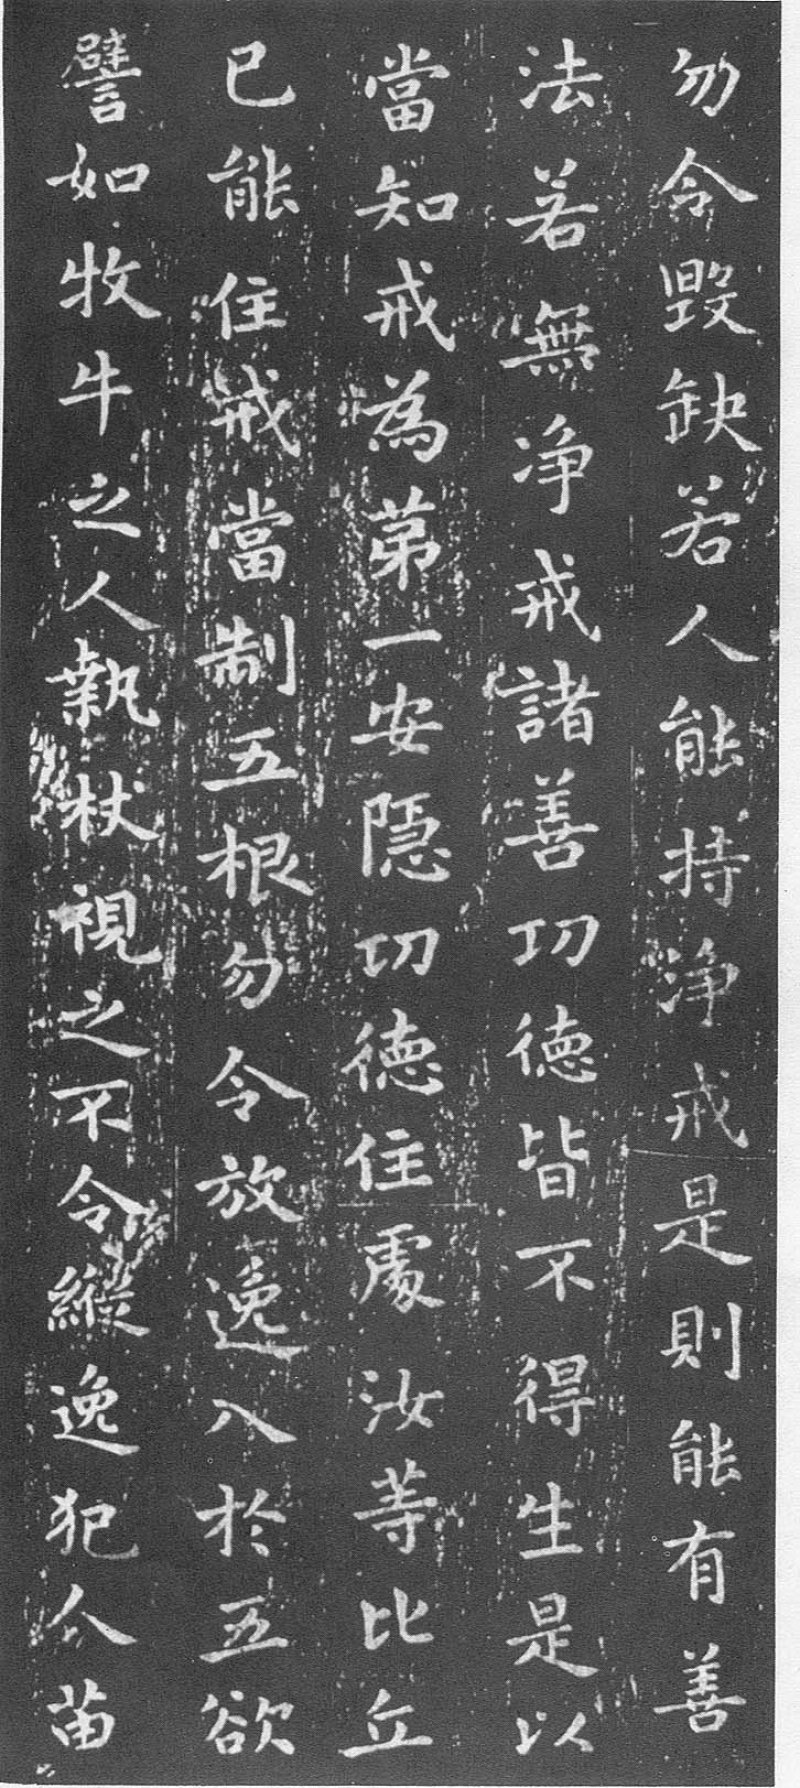 勿令毀缺若人能持淨戒是則能有善
法若無淨戒諸善功德皆不得生是以
當知戒為苐一安隱功德住處汝等比丘
已能住戒當制五根勿令放逸入於五欲
譬如牧牛之人執杖視之不令縱逸犯人苗